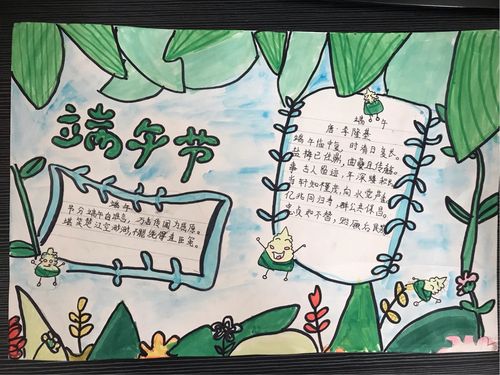 端午节
端午
节分端午自谁言,万古传闻为屈原。
堪笑楚江空渺渺,不能洗得直臣冤。
端午
唐·李隆基
端午临中夏,时清日复长。
盐梅已佐鼎,曲糵且传觞。
事古人留迹,年深缕积长。
当轩知槿茂,向水觉芦香。
亿兆同归寿,群公共保昌。
忠贞如不替,贻厥后昆芳。